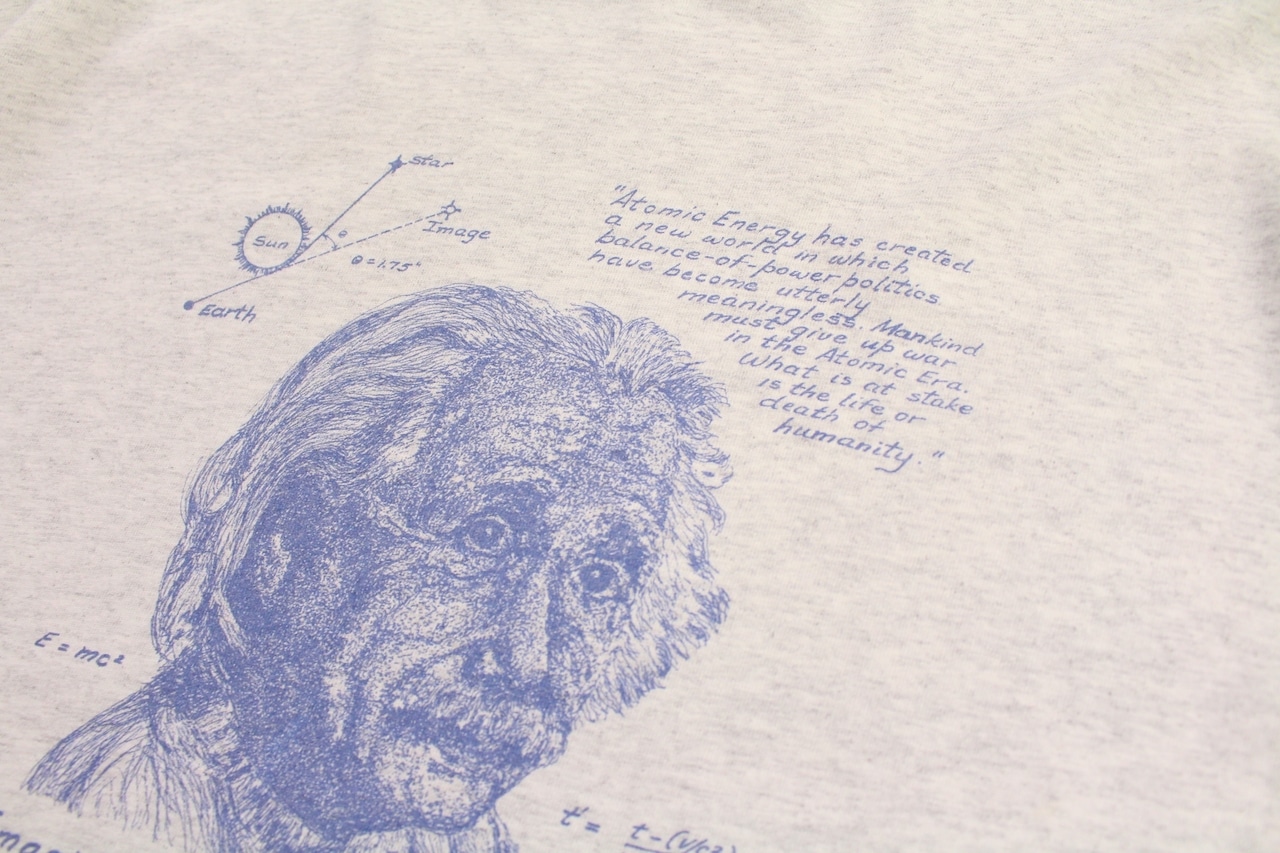 Star
Image
Sun
θ
θ = 1.75"
Earth
"Atomic Energy has created
a new world in which
balance-of-power politics
have become utterly
meaningless. Mankind
must give up war
in the Atomic Era.
What is at stake
is the life or
death of
humanity."
E = mc²
t' = t - (v/c²)